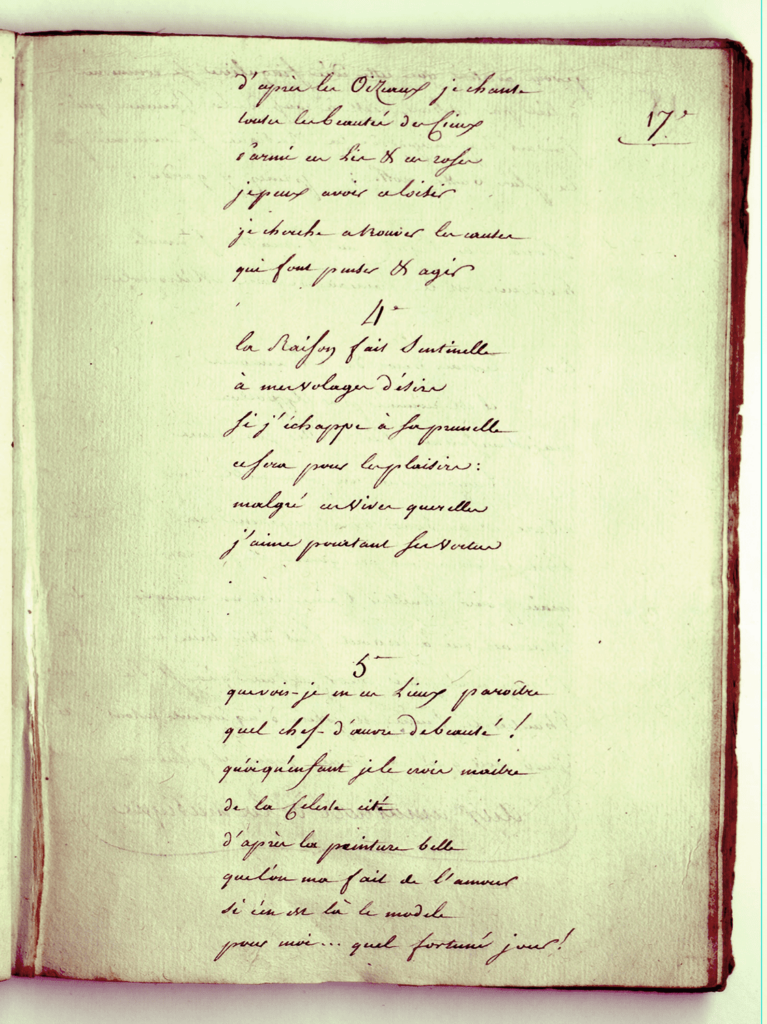 d'après les Oizeaux je chante
17e
toutes les beautés des Cieux
parmi ces Lis & ces roses
je peux avoir ce loisir
je cherche a trouver les causes
qui font penser & agir
4e
la Raison fait Sentinelle
à mes volages désirs
si j'échappe à sa prunelle
ce sera pour les plaisirs:
malgré ces vives querelles
j'aime pourtant ses vertus
5e
que vois-je en ces Lieux paroître
quel chef-d'œuvre de beauté!
quoiqu'enfant je le crois maitre
de la Celeste cité
d'après la peinture belle
que l'on ma fait de l'amour
si c'en est là le modele
pour moi... quel fortuné jour!